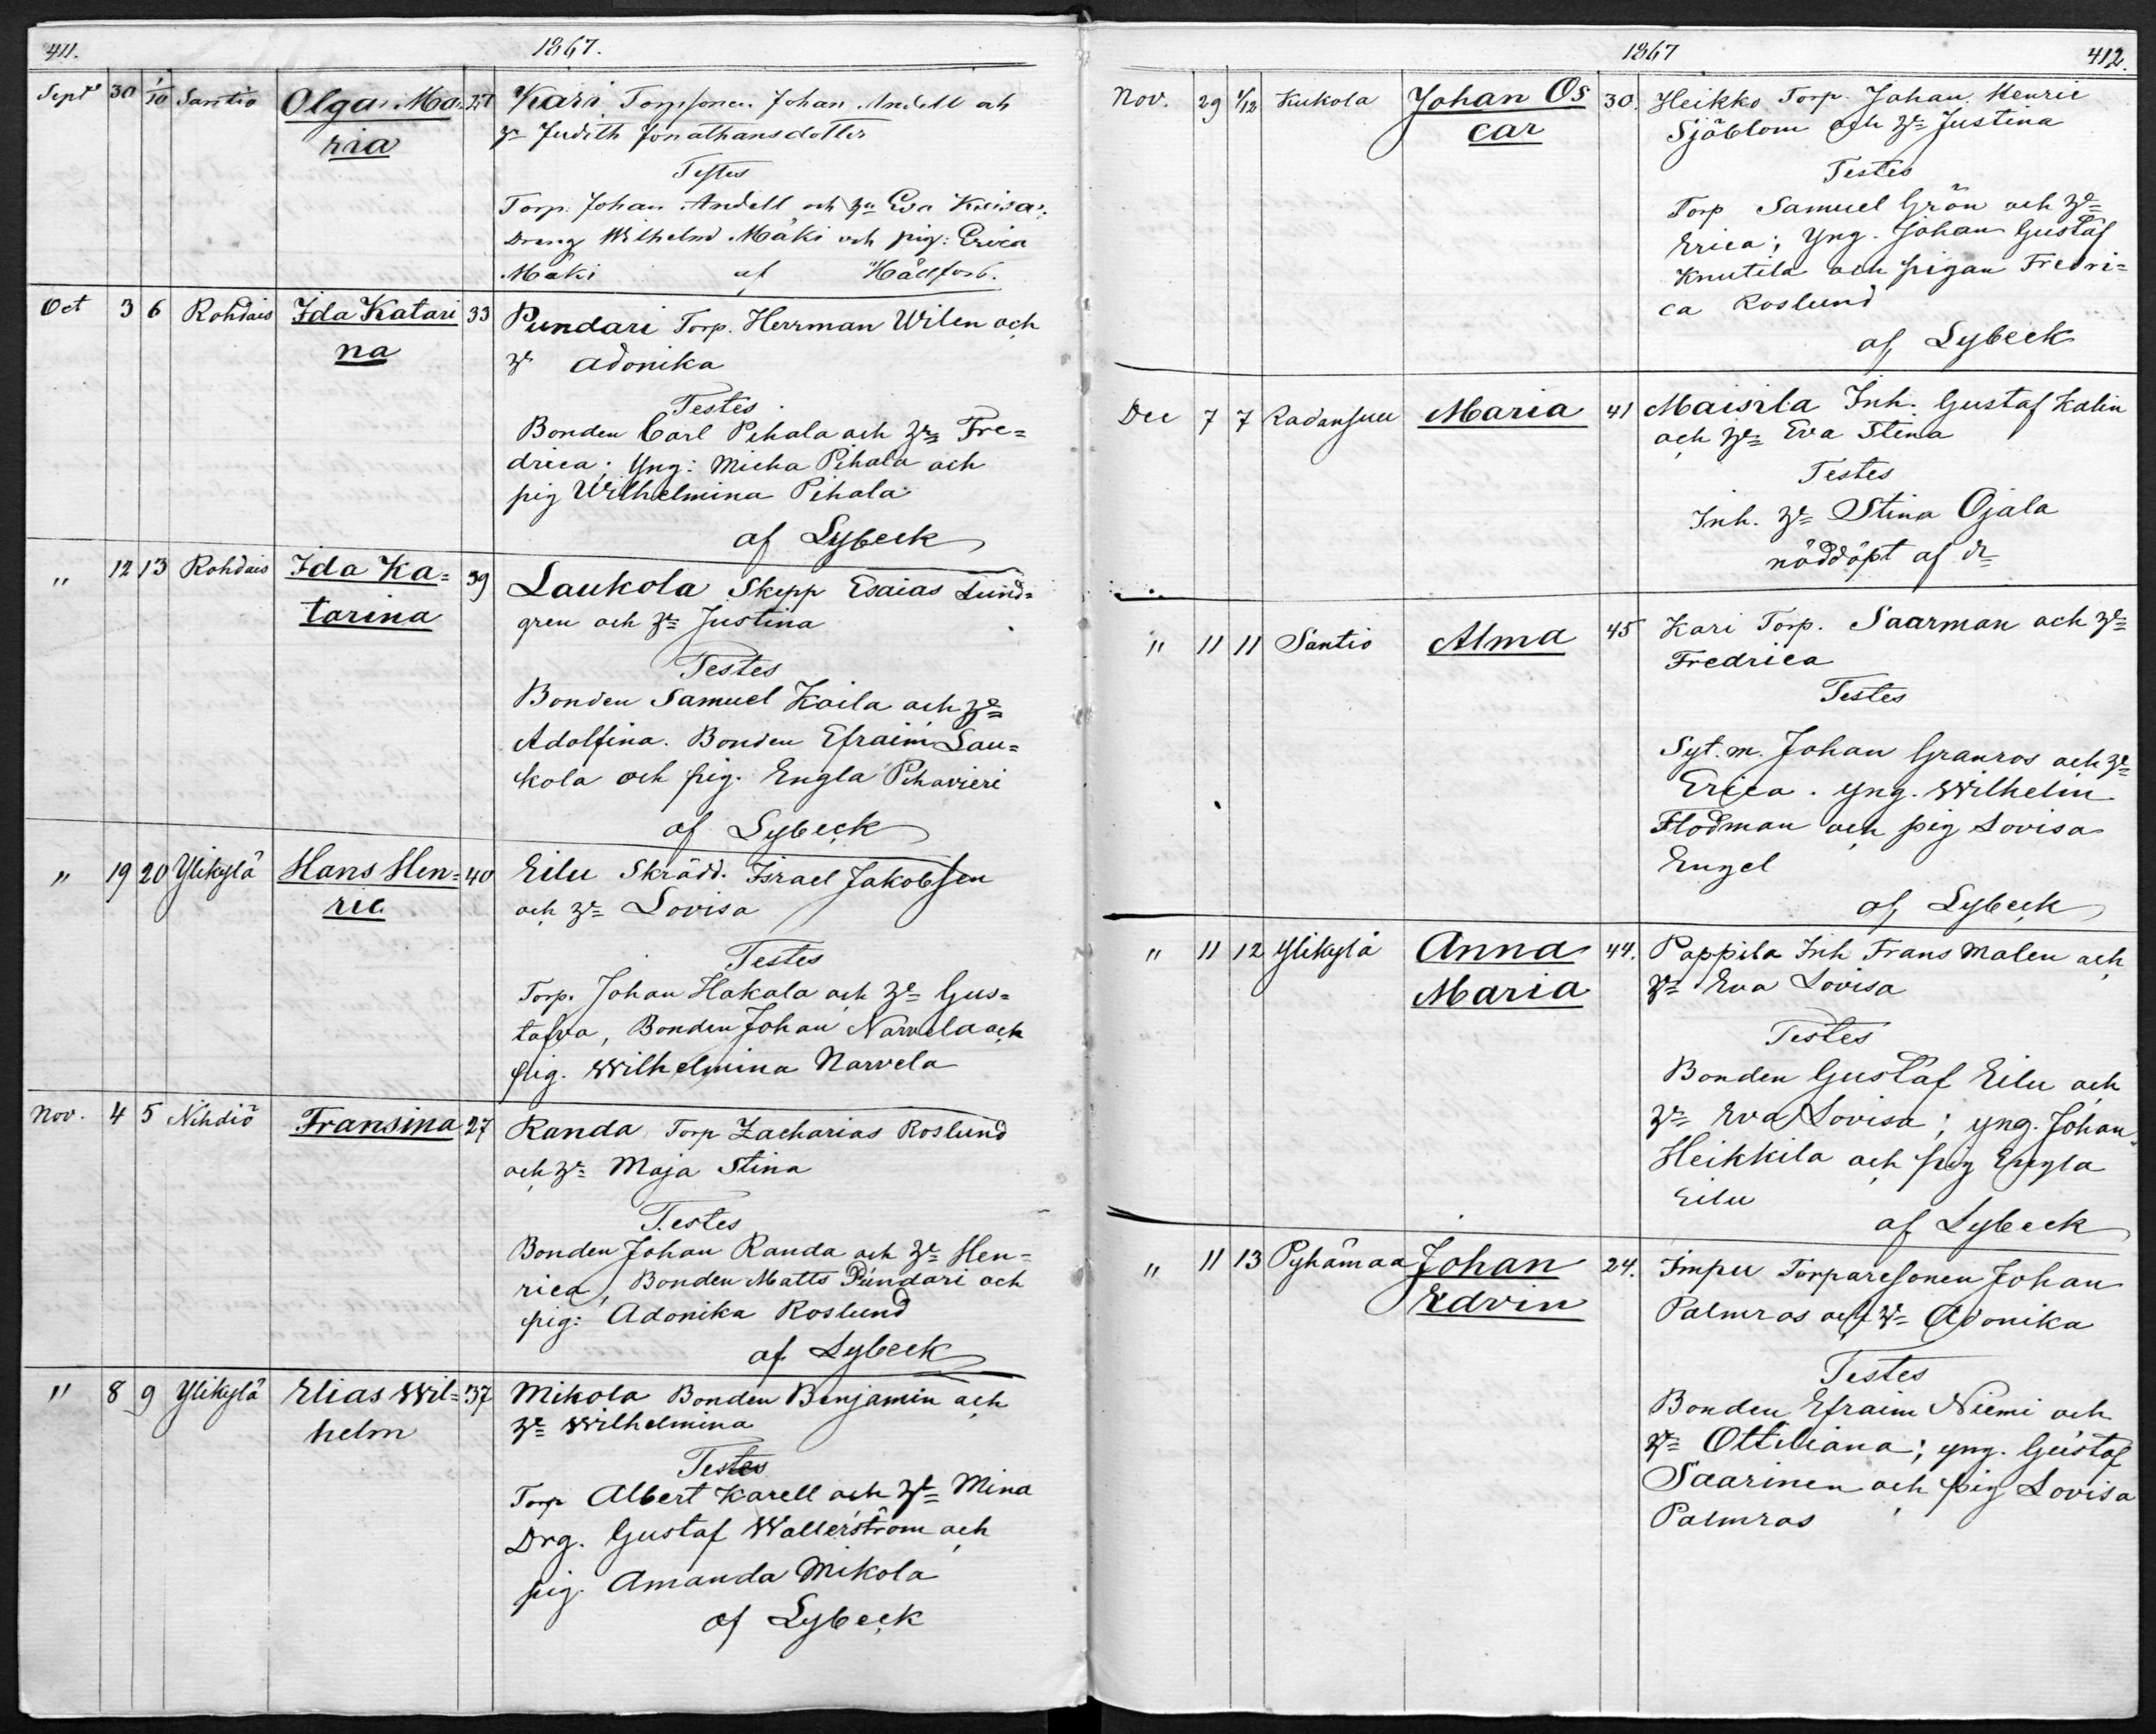 411. 1867.
Sept 30 1/10 Santio Olga Ma= 27 Kari Torpsonen Johan Andell och
ria hu Judith Jonathansdotter
Testes
Torp. Johan Andell och hu Eva Kaisa.
Dräng Wilhelm Mäki och pig: Erica
Mäki af Hällfors.
Oct 3 6 Rohdais Ida Katari 33 Pundari Torp. Herrman Wilen och
na hu Adonika
Testes
Bonden Carl Pihala och hu Fre=
drica; Yng: Micha Pihala och
pig Wilhelmina Pihala
af Lybeck
" 12 13 Rohdais Ida Ka= 39 Laukola Skepp Esaias Lund=
tarina gren och hu Justina
Testes
Bonden Samuel Kaila och hu
Adolfina. Bonden Efraim Lau=
kola och pig. Engla Pihavieri
af Lybeck
" 19 20 Ylikylä Hans Hen= 40 Eilu Skrädd. Israel Jakobsen
ric och hu Lovisa
Testes
Torp. Johan Hakala och hu Gus=
tafva, Bonden Johan Narvela och
pig. Wilhelmina Narvela
Nov. 4 5 Nihdiö Fransina 27 Randa Torp Zacharias Roslund
och hu Maja Stina
Testes
Bonden Johan Randa och hu Hen=
rica, Bonden Matts Pundari och
pig: Adonika Roslund
af Lybeck
" 8 9 Ylikylä Elias Wil= 37 Mikola Bonden Benjamin och
helm hu Wilhelmina
Testes
Torp Albert Karell och hu Mina
Drg. Gustaf Wallerström och
pig. Amanda Mikola
af Lybeck
1867 412.
Nov. 29 1/12 Kukola Johan Os 30. Heikko Torp. Johan Henric
car Sjöblom och hu Justina
Testes
Torp Samuel Grön och hu
Erica; Yng. Johan Gustaf
Knutila och pigan Fredri=
ca Roslund
af Lybeck
Dec 7 7 Radansuu Maria 41 Maisila Inh. Gustaf Kalin
och hu Eva Stina
Testes
Inh. hu Stina Ojala
nöddöpt af dr
" 11 11 Santio Alma 45 Kari Torp. Saarman och hu
Fredrica
Testes
Syt. m. Johan Granros och hu
Erica. yng. Wilhelm
Flodman och pig Lovisa
Engel
af Lybeck
" 11 12 Ylikylä Anna 44. Pappila Inh Frans Malen och
Maria hu Eva Lovisa
Testes
Bonden Gustaf Eilu och
hu Eva Lovisa; yng. Johan
Heikkila och pig Engla
Eilu
af Lybeck
" 11 13 Pyhämaa Johan 24. Impu Torparesonen Johan
Edvin Palmros och hu Adonika
Testes
Bonden Efraim Niemi och
hu Ottiliana; yng. Gustaf
Saarinen och pig Lovisa
Palmros